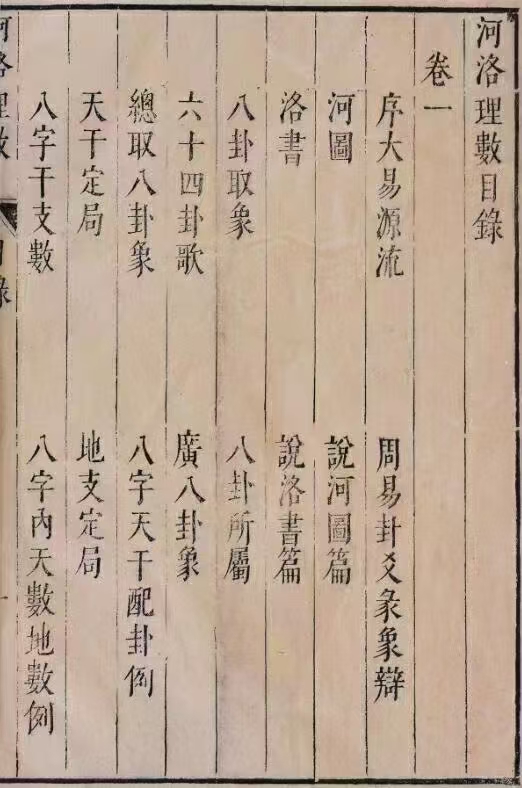 河洛理數目錄
卷一
序大易源流
周易卦爻彖象辯
河圖
說河圖篇
洛書
說洛書篇
八卦取象
八卦所屬
六十四卦歌
廣八卦象
總取八卦象
八字天干配卦例
天干定局
地支定局
八字干支數
八字內天數地數例
河洛理數
目錄
一